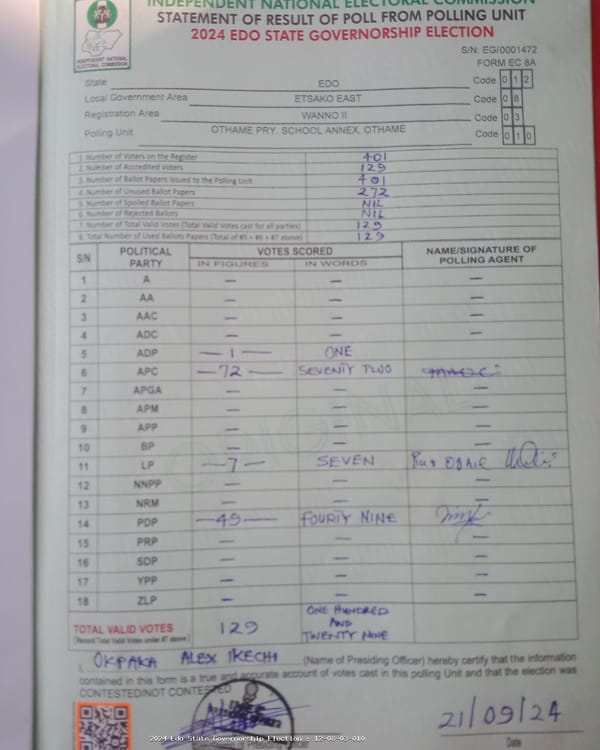 INDEPENDENT NATIONAL ELECTORAL COMMISSION
STATEMENT OF RESULT OF POLL FROM POLLING UNIT
2024 EDO STATE GOVERNORSHIP ELECTION
INEC
INDEPENDENT NATIONAL ELECTORAL COMMISSION
S/N: EG/0001472
FORM EC 8A
State EDO Code 0 1 2
Local Government Area ETSAKO EAST Code 0 8
Registration Area WANNO II Code 0 3
Polling Unit OTHAME PRY. SCHOOL ANNEX, OTHAME Code 0 1 0
1. Number of Voters on the Register 401
2. Number of Accredited Voters 129
3. Number of Ballot Papers Issued to the Polling Unit 401
4. Number of Unused Ballot Papers 272
5. Number of Spoiled Ballot Papers NIL
6. Number of Rejected Ballots NIL
7. Number of Total Valid Votes (Total Valid Votes cast for all parties) 129
8. Total Number of Used Ballots Papers (Total of #5 + #6 + #7 above) 129
S/N POLITICAL PARTY VOTES SCORED NAME/SIGNATURE OF POLLING AGENT
IN FIGURES IN WORDS
1 A — — —
2 AA — — —
3 AAC — — —
4 ADC — — —
5 ADP —1— ONE
6 APC —72— SEVENTY TWO
7 APGA — — —
8 APM — — —
9 APP — — —
10 BP — — —
11 LP —7— SEVEN
12 NNPP — — —
13 NRM — — —
14 PDP —49— FOURTY NINE
15 PRP — — —
16 SDP — — —
17 YPP — — —
18 ZLP — — —
TOTAL VALID VOTES 129 ONE HUNDRED AND TWENTY NINE
(Record Total Valid Votes under #7 above)
I, OKPAKA ALEX IKECHI (Name of Presiding Officer) hereby certify that the information
contained in this form is a true and accurate account of votes cast in this polling Unit and that the election was
CONTESTED/NOT CONTESTED
21/09/24
Date
2024 Edo State Governorship Election : 12-08-03-010